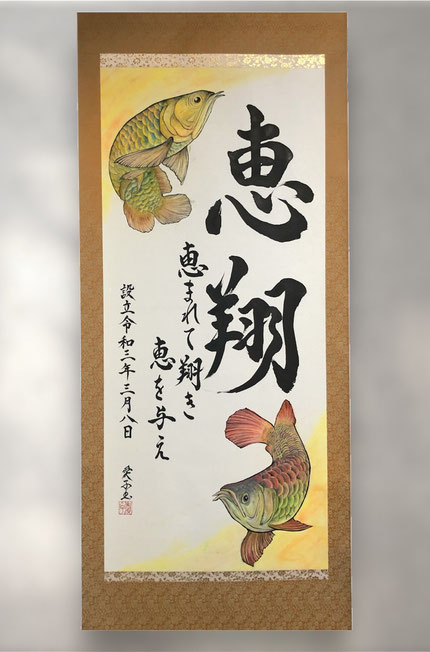 恵翔
恵まれて翔き
恵を与え
設立令和三年三月八日